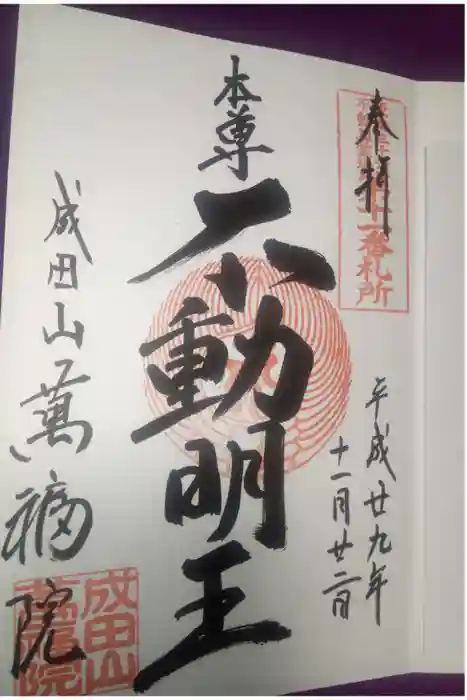 奉拝
十一番札所
平成廿九年
十一月廿二日
本尊
不動明王
成田山萬福院
成田山
萬福院